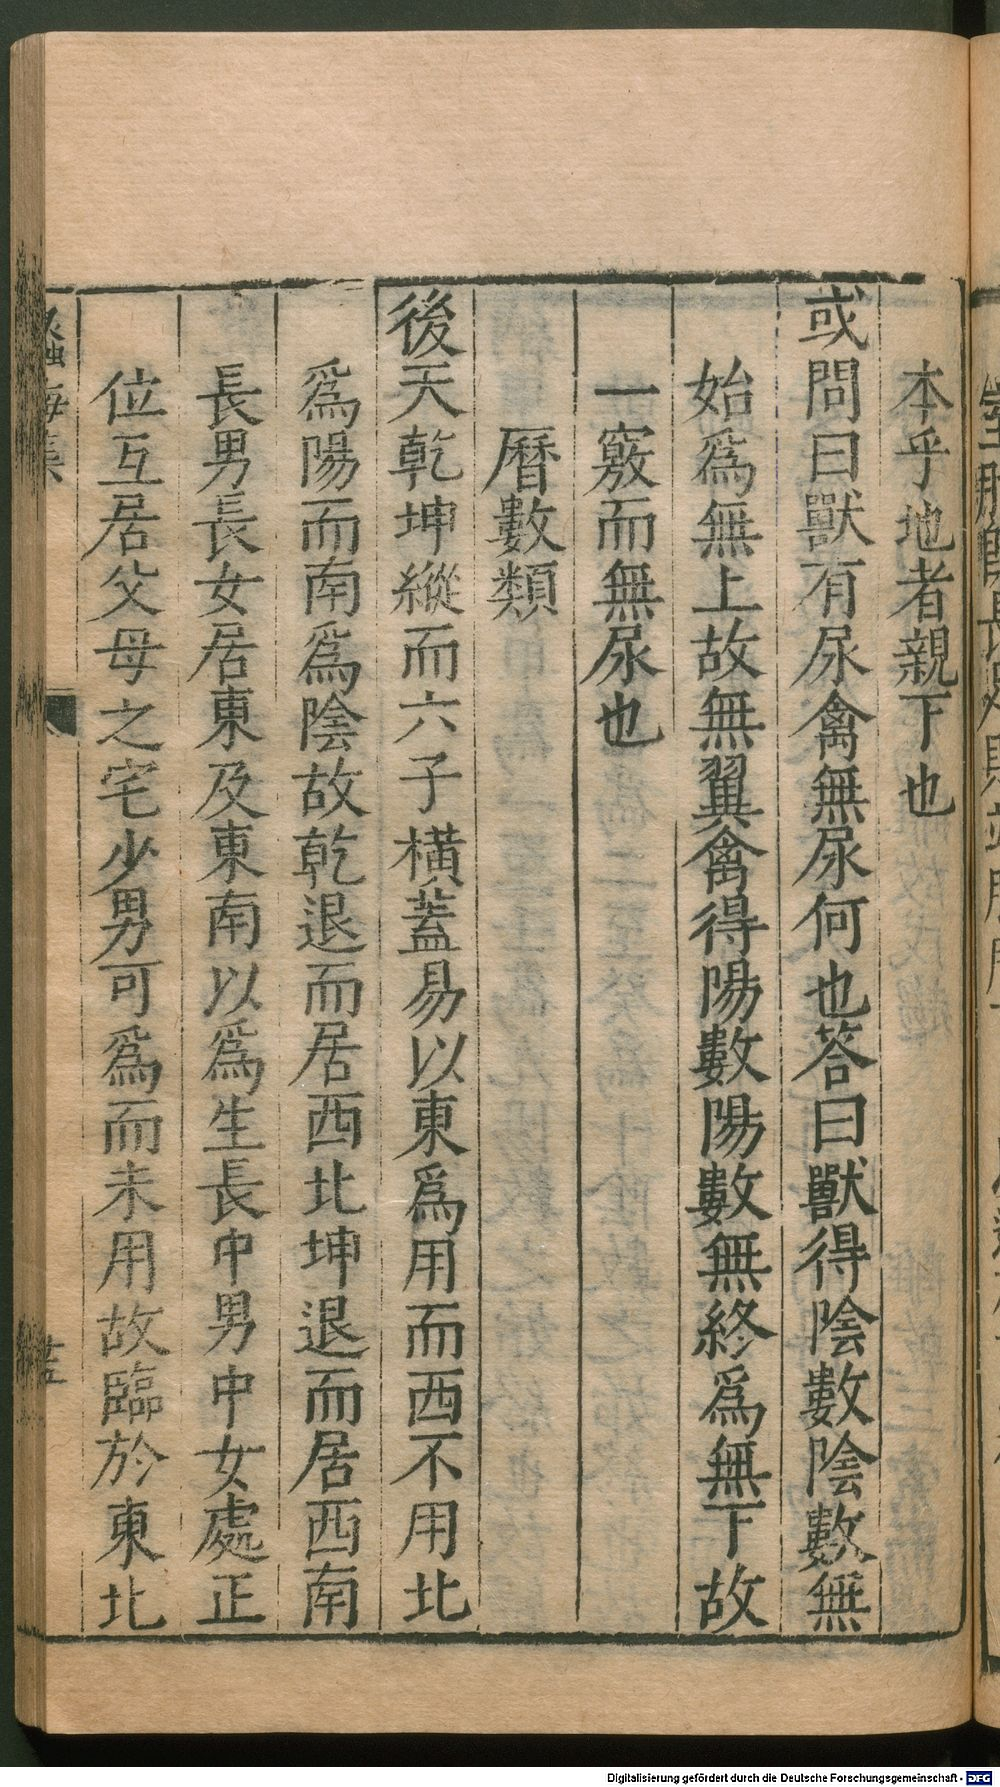 本乎地者親下也
或問曰獸有尿禽無尿何也荅曰獸得陰數陰數無
始爲無上故無翼禽得陽數陽數無終爲無下故
一竅而無尿也
曆數類
後天乾坤縱而六子橫蓋易以東爲用而西不用北
爲陽而南爲陰故乾退而居西北坤退而居西南
長男長女居東及東南以爲生長中男中女處正
位互居父母之宅少男可爲而未用故臨於東北
Digitalisierung gefördert durch die Deutsche Forschungsgemeinschaft - DFG